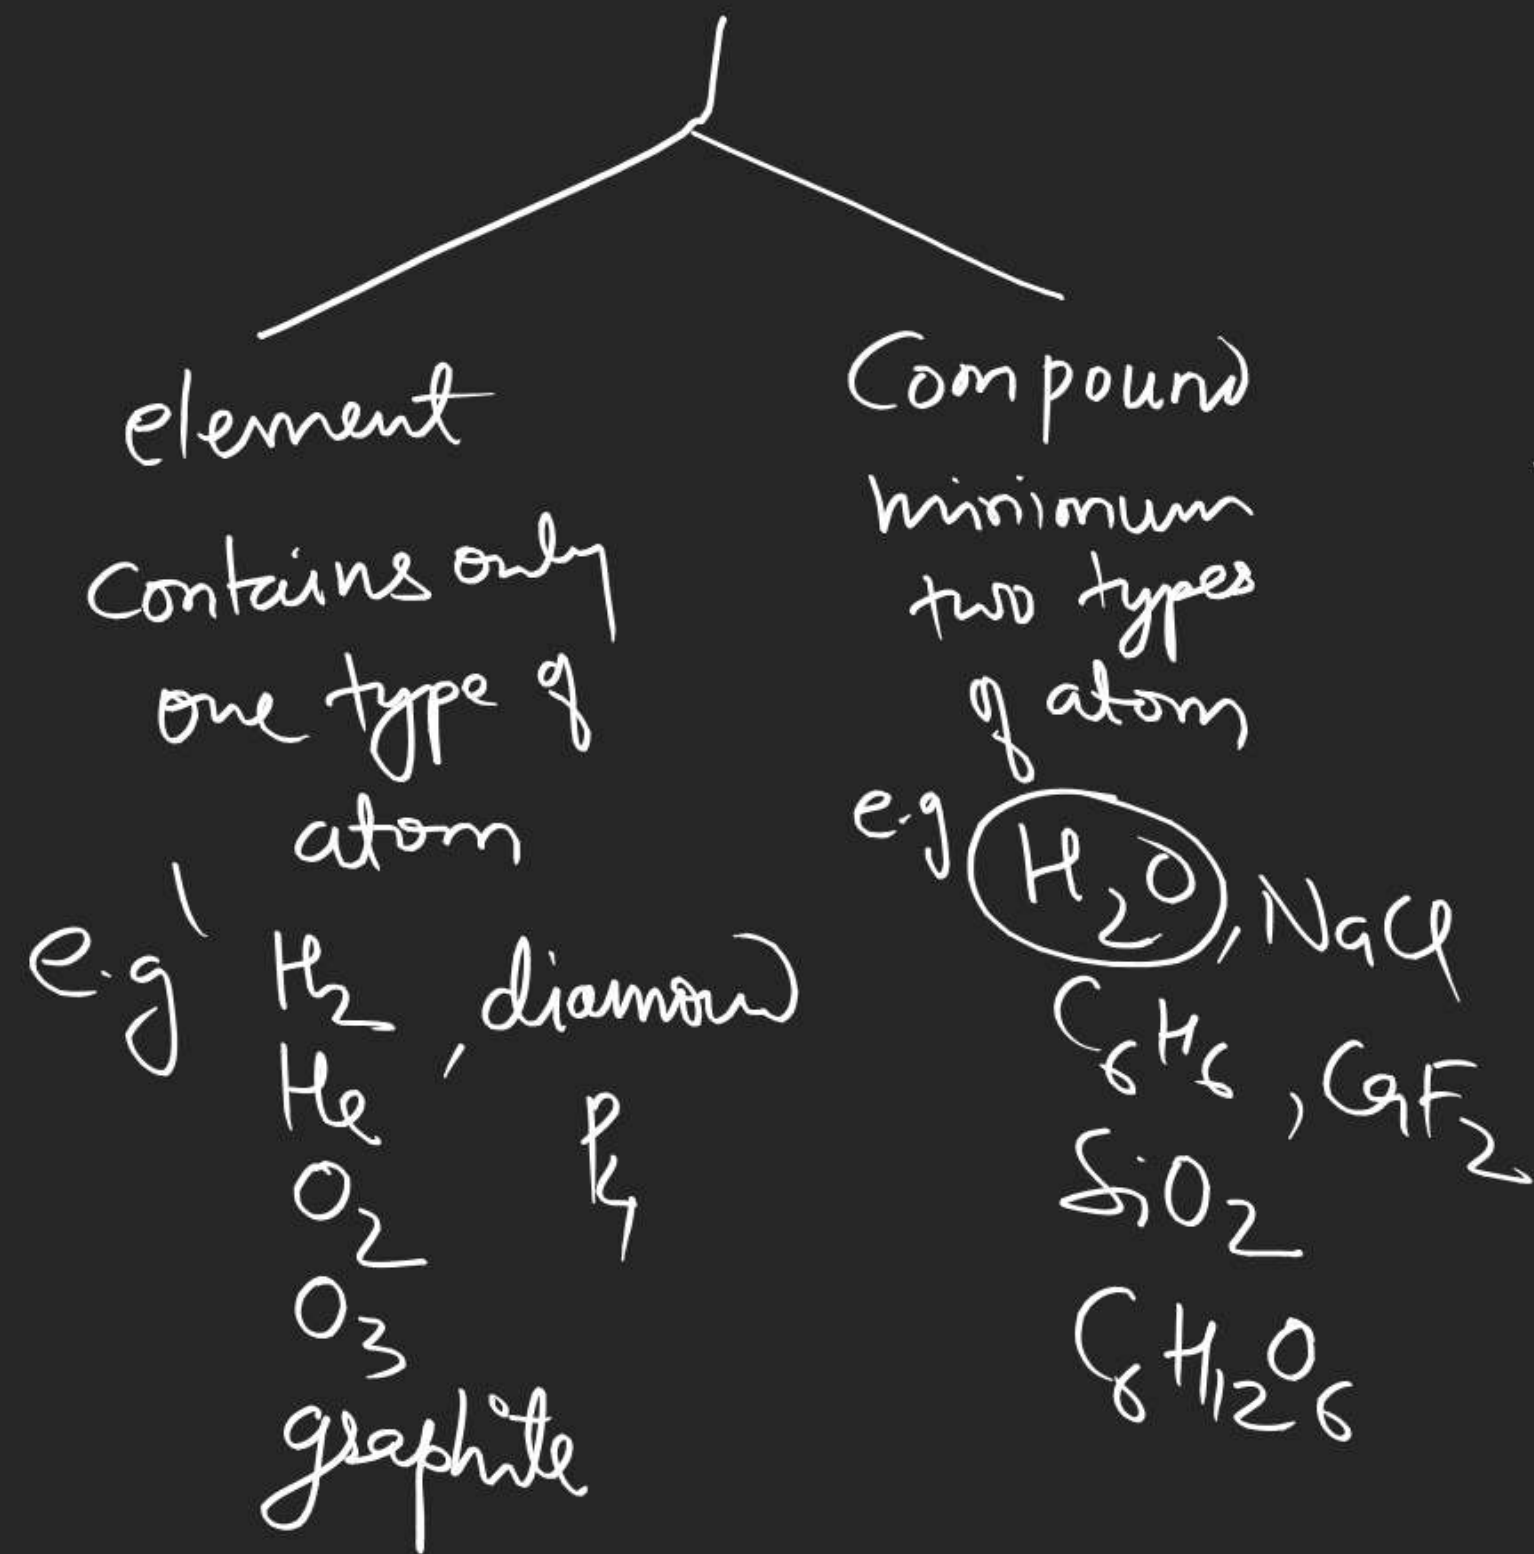 element
contains only
one type of
atom
e.g H₂, diamond
He
P₄
O₂
O₃
graphite
Compound
minimum
two types
of atom
e.g H₂O, NaCl
C₆H₆, CaF₂
SiO₂
C₆H₁₂O₆